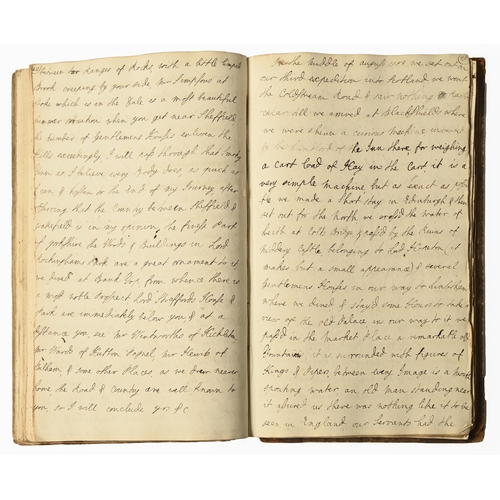 between two Ranges of Rocks, with a little limpid
Brook creeping by your side, Mr Simpsons at
Stoke which is in the Dale is a most beautiful
summer situation when you get near Sheffield
the number of Gentlemens Houses enliven the
Hills accordingly, I will pass through that smoky
Town as I believe every Body does as quick as
I can & hasten to the end of my Journey after
observing that the Country between Sheffield &
Wakefield is in my opinion, the finest Part
of Yorkshire the Woods & Buildings in Lord
Rockinghams Park are a great ornament to it
we dined at Bank Top from whence there is
a most noble Prospect Lord Straffords House &
Park are immediately below you & at a
distance you see Mr Wentworths of Hickleton
Mr Wards of Hutton Pagnel, Mr
& some other Places as we drew nearer
home the Road & Country are well known to
you, so I will conclude yrs &c
In the middle of august we set out
our third expedition into Scotland we went
the Coldstream Road & saw nothing
till we arrived at Blackshields where
we were shewn a curious machine
the Inn there for weighing
a cart load of Hay in the Cart it is a
very simple machine but as exact as
we made a short stay in Edinburgh & then
set out for the North we cross'd the water of
Leith at Colt Bridge & pass'd by the Ruins of
Niddery Castle belonging to Lord Hopeton, it
makes but a small appearance & several
Gentlemens Houses in our way to Linlithgow
where we dined & stay'd some Hours to take a
view of the old Palace in our way to it we
pass'd in the market Place a remarkable old
Fountain it is surrounded with figures of
Kings & Pipers, between every Image is a
spouting water an old man standing near
it assured us there was nothing like it to be
seen in England our Servants had the